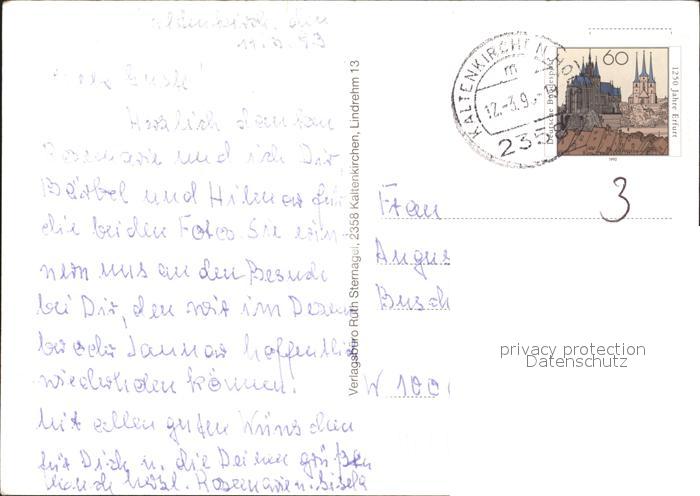 Kaltenkirch., den
11.3.93
Gusti!
Herzlich danken
Rosemarie und ich Dir,
Bärbel und Hilmar für
die beiden Fotos. Sie erin-
nern uns an den Besuch
bei Dir, den wir im Dezem-
ber oder Januar hoffentlich
wiederholen können!
Mit allen guten Wünschen
für Dich u. die Deinen grüßen
Rosemarie u. Gisela
Verlagsbüro Ruth Sternagel, 2358 Kaltenkirchen, Lindrehm 13
KALTENKIRCHEN, HOL
m
12.-3.9
2358
60
Deutsche Bundespost
1250 Jahre Erfurt
1992
3
Frau
Augus
Busch
W 100
privacy protection
Datenschutz